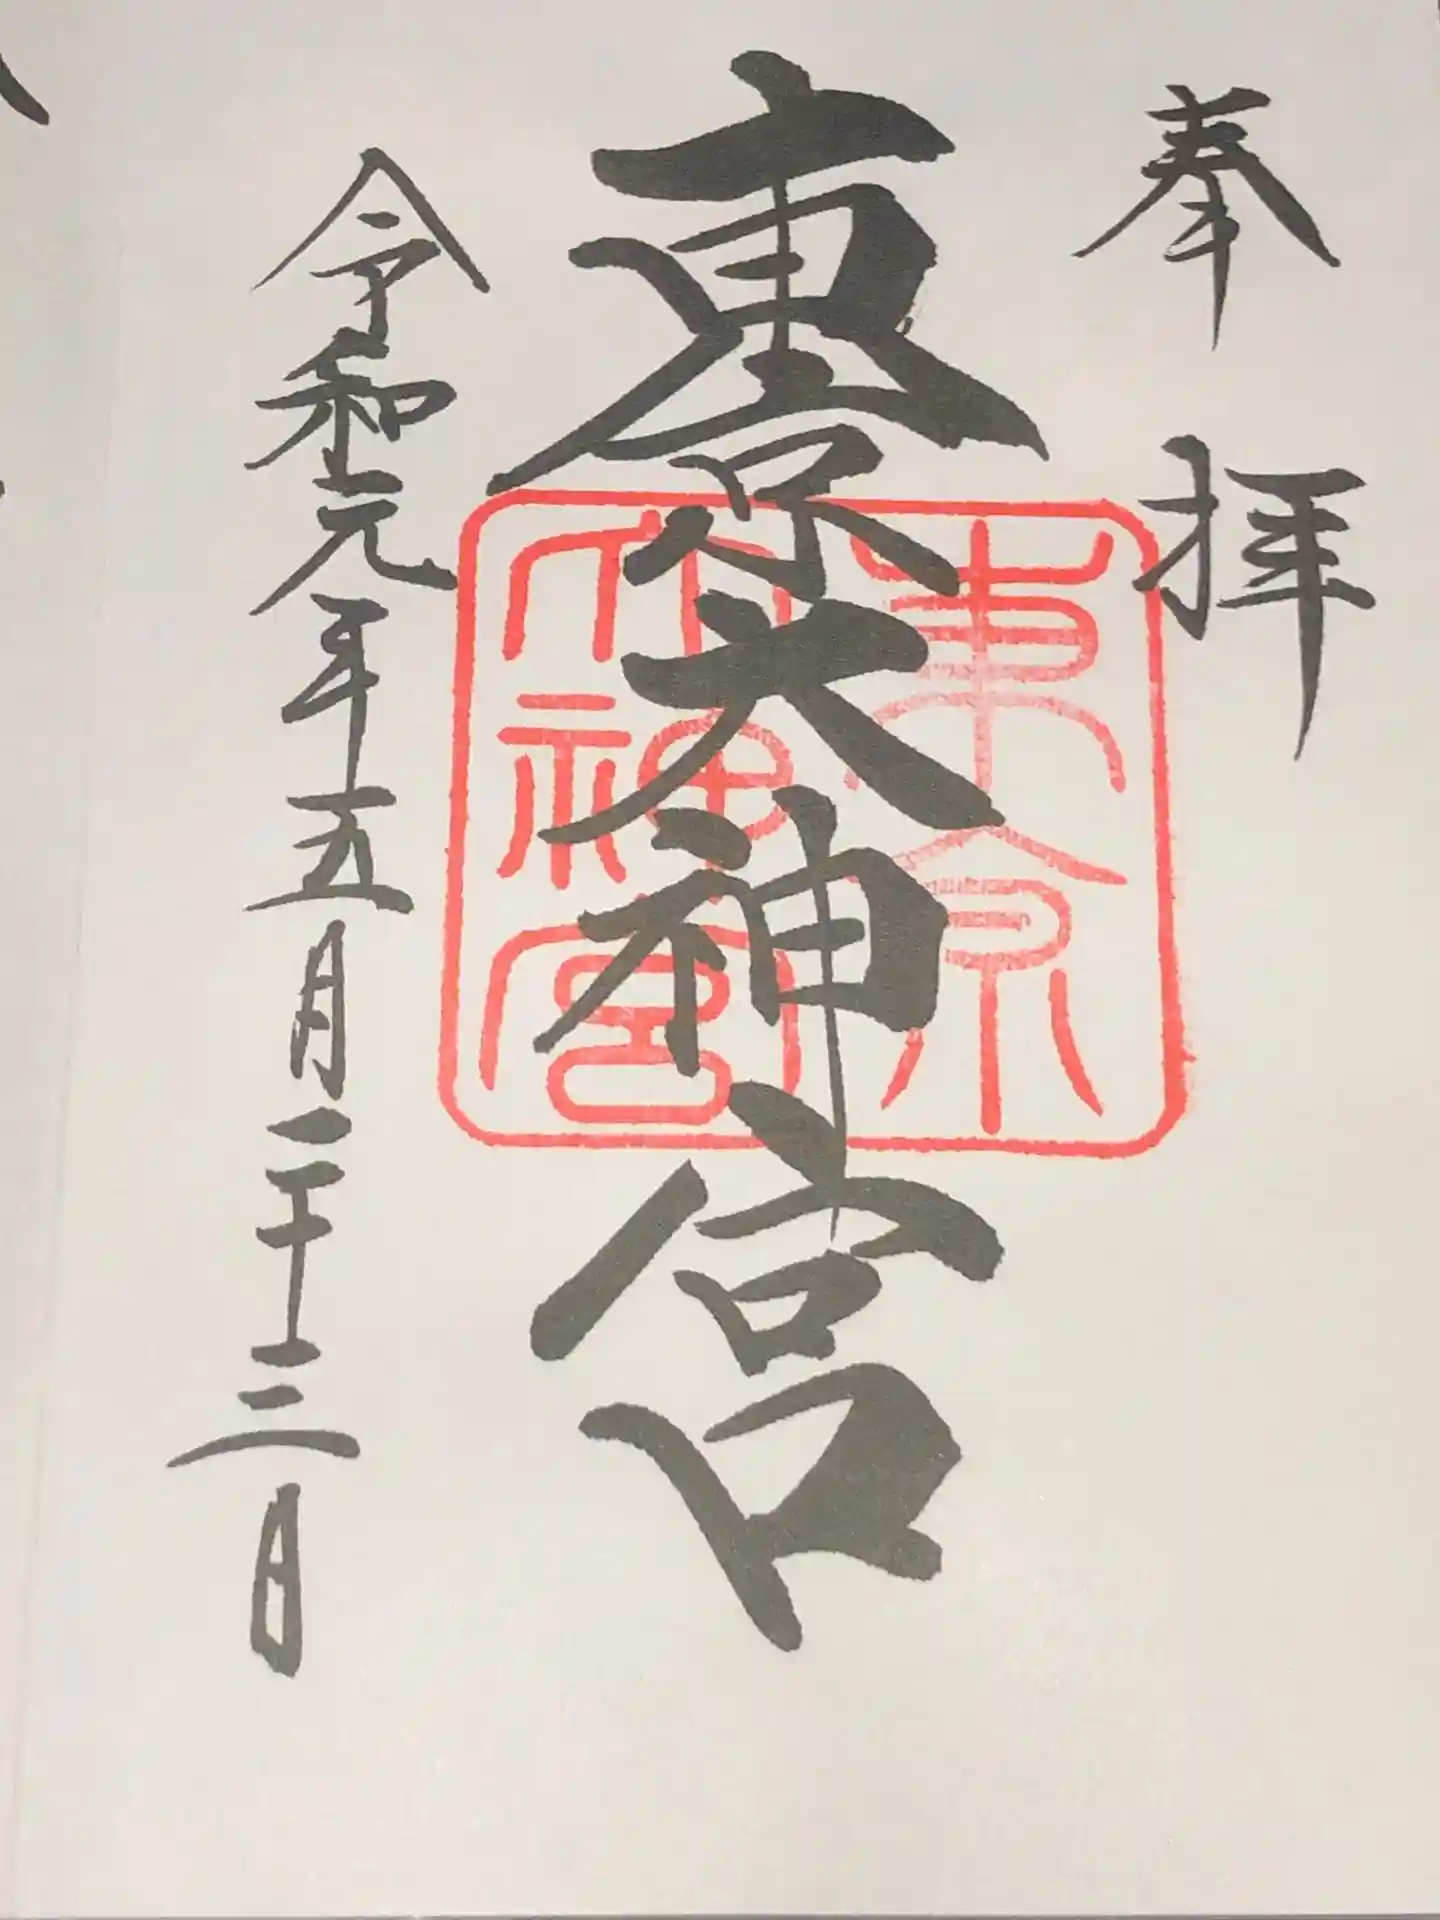 奉拝
東京大神宮
東京
大神宮
令和元年五月二十三日